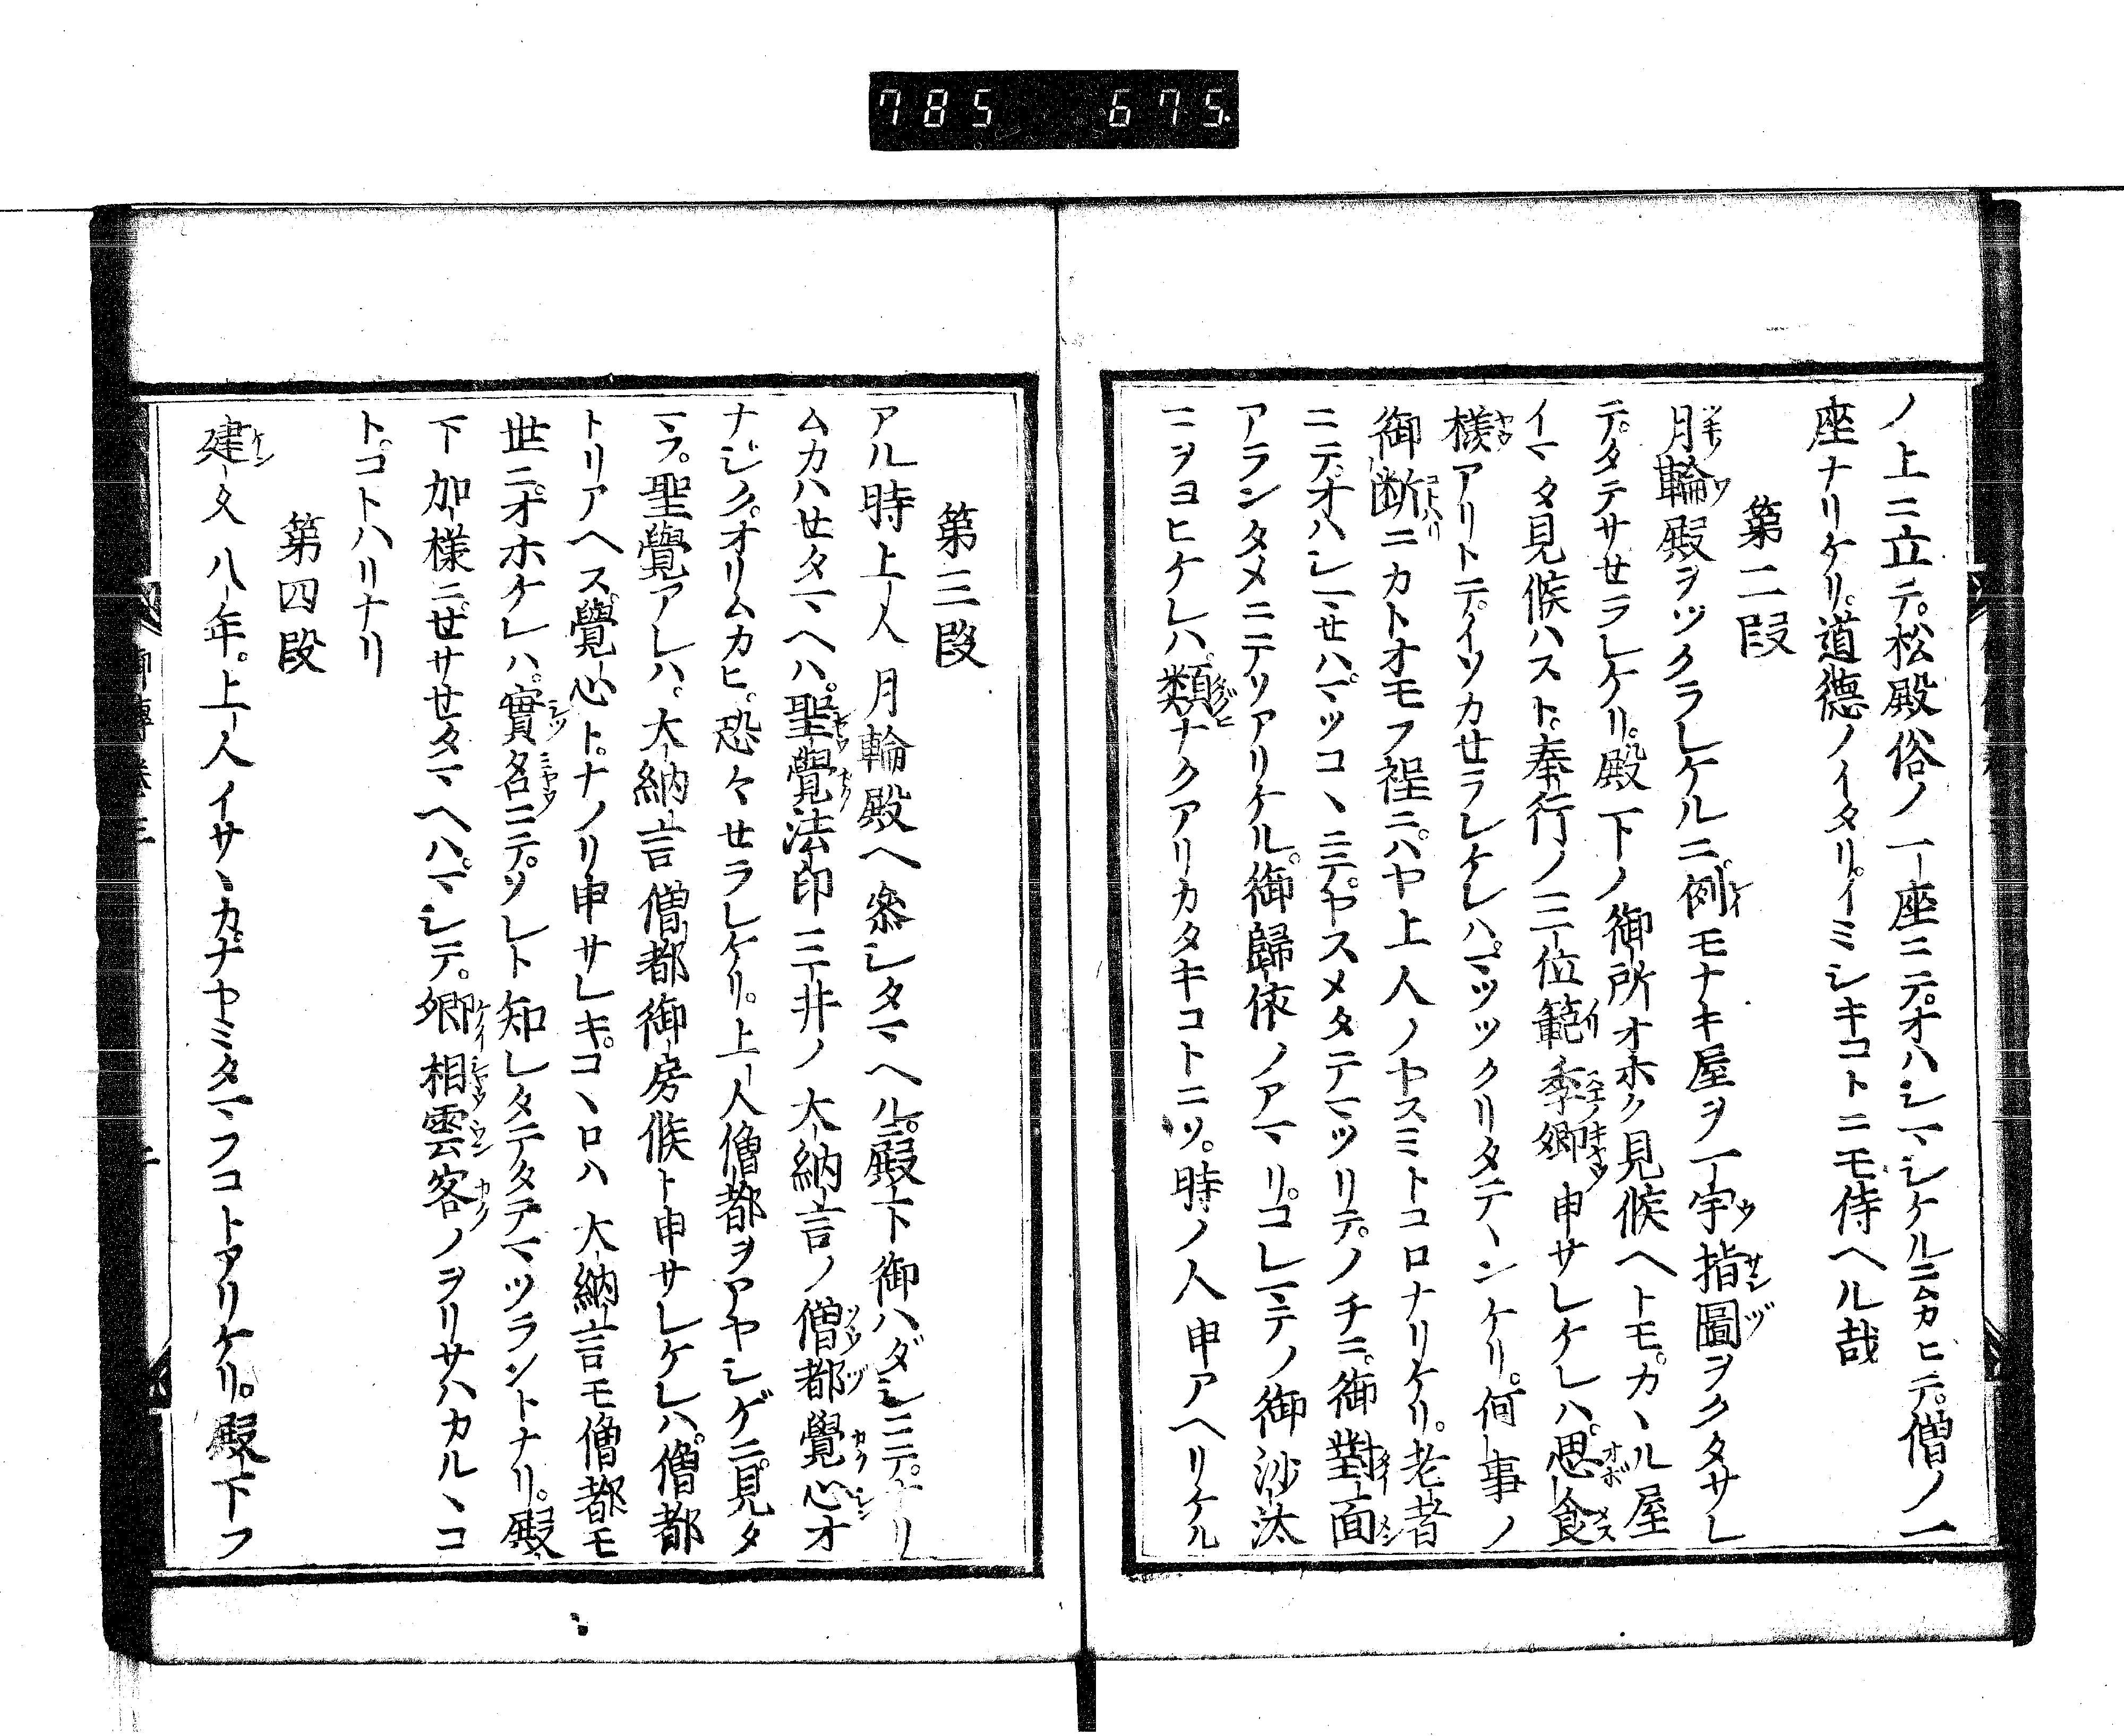 785 675
ノ上ニ立テ。松殿俗ノ一座ニテ。オハシマシケルニムカヒテ。僧ノ一
座ナリケリ。道德ノイタリ。イミシキコトニモ侍ヘル哉
第二段
月輪殿ヲツクラレケルニ。例モナキ屋ヲ一宇指圖ヲクタサレ
テ。タテサセラレケリ。殿下ノ御所オホク見候ヘトモ。カヽル屋
イマタ見候ハスト。奉行ノ三位範季卿申サレケレハ。思食
樣アリトテ。イソカセラレケレハ。マツツクリタテヽンケリ。何事ノ
御断ニカトオモフ程ニ。ハヤ上人ノヤスミトコロナリケリ。老者
ニテ。オハシマセハ。マツコヽニテ。ヤスメタテマツリテ。ノチニ。御對面
アランタメニテソアリケル。御歸依ノアマリ。コレマテノ御沙汰
ニヲヨヒケレハ。類ナクアリカタキコトニソ。時ノ人申アヘリケル
第三段
アル時上人月輪殿ヘ參シタマヘル。殿下御ハダシニテ。オリ
ムカハセタマヘハ。聖覺法印三井ノ大納言ノ僧都覺心オ
ナシク。オリムカヒ。恐々セラレケリ。上人僧都ヲアヤシゲニ。見タ
マフ。聖覺アレハ。大納言僧都御房候ト申サレケレハ。僧都
トリアヘス。覺心ト。ナノリ申サレキ。コヽロハ大納言モ僧都モ
世ニ。オホケレハ。實名ニテ。ソレト知レタテタテマツラントナリ。殿
下加樣ニ。セサセタマヘハ。マシテ。卿相雲客ノヲリサハカルヽコ
ト。コトハリナリ
第四段
建久八年。上人イサヽカ。ナヤミタマフコトアリケリ。殿下フ